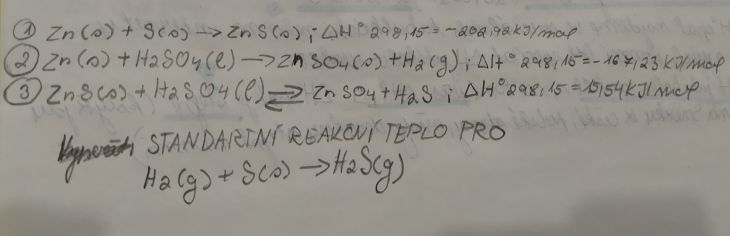 ① Zn(s) + S(s) → ZnS(s) ; ΔH° 298,15 = -202,92 kJ/mol
② Zn(s) + H2SO4(l) → ZnSO4(s) + H2(g) ; ΔH° 298,15 = -167,23 kJ/mol
③ ZnS(s) + H2SO4(l) ⇌ ZnSO4 + H2S ; ΔH° 298,15 = 15,54 kJ/mol
STANDARTNÍ REAKČNÍ TEPLO PRO
H2(g) + S(s) → H2S(g)